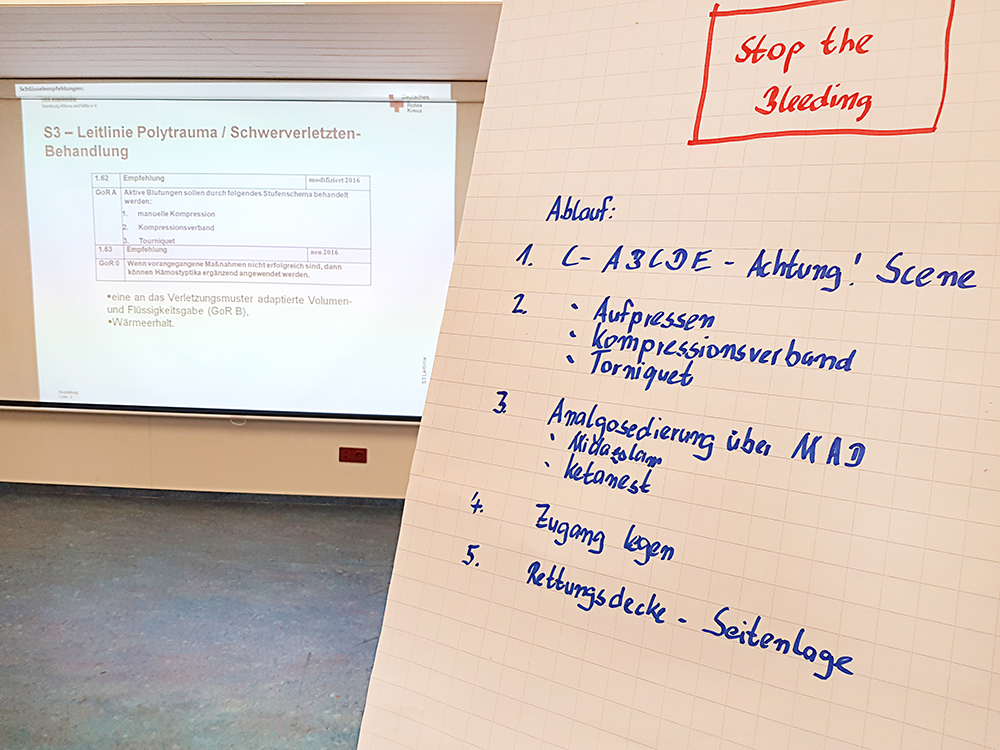 Schlüsselempfehlungen:
Deutsches
Rotes
Kreuz
S3 – Leitlinie Polytrauma / Schwerverletzten-
Behandlung
1.62 Empfehlung modifiziert 2016
GoR A Aktive Blutungen sollen durch folgendes Stufenschema behandelt
werden:
1. manuelle Kompression
2. Kompressionsverband
3. Tourniquet
1.63 Empfehlung neu 2016
GoR 0 Wenn vorangegangene Maßnahmen nicht erfolgreich sind, dann
können Hämostyptika ergänzend angewendet werden.
▪eine an das Verletzungsmuster adaptierte Volumen-
und Flüssigkeitsgabe (GoR B),
▪Wärmeerhalt.
S3 Leitlinie
Stop the
Bleeding
Ablauf:
1. C-ABCDE - Achtung! Scene
2. • Aufpressen
• Kompressionsverband
• Torniquet
3. Analgosedierung über MAD
• Midazolam
• Ketanest
4. Zugang legen
5. Rettungsdecke - Seitenlage